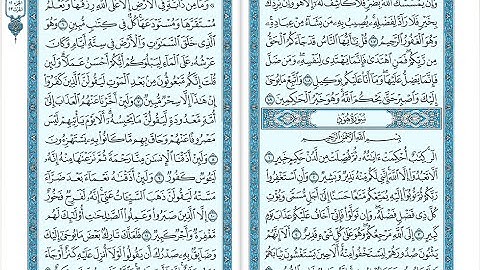 وَإِن يَمْسَسْكَ ٱللَّهُ بِضُرٍّ فَلَا كَاشِفَ لَهُۥٓ إِلَّا هُوَ وَإِن يُرِدْكَ
بِخَيْرٍ فَلَا رَآدَّ لِفَضْلِهِۦ يُصِيبُ بِهِۦ مَن يَشَآءُ مِنْ عِبَادِهِۦ
وَهُوَ ٱلْغَفُورُ ٱلرَّحِيمُ ١٠٧ قُلْ يَٰٓأَيُّهَا ٱلنَّاسُ قَدْ جَآءَكُمُ ٱلْحَقُّ
مِن رَّبِّكُمْ فَمَنِ ٱهْتَدَىٰ فَإِنَّمَا يَهْتَدِى لِنَفْسِهِۦ وَمَن ضَلَّ
فَإِنَّمَا يَضِلُّ عَلَيْهَا وَمَآ أَنَا۠ عَلَيْكُم بِوَكِيلٍ ١٠٨ وَٱتَّبِعْ مَا يُوحَىٰٓ
إِلَيْكَ وَٱصْبِرْ حَتَّىٰ يَحْكُمَ ٱللَّهُ وَهُوَ خَيْرُ ٱلْحَٰكِمِينَ ١٠٩
سُورَةُ هُودٍ
بِسْمِ ٱللَّهِ ٱلرَّحْمَٰنِ ٱلرَّحِيمِ
الٓر كِتَٰبٌ أُحْكِمَتْ ءَايَٰتُهُۥ ثُمَّ فُصِّلَتْ مِن لَّدُنْ حَكِيمٍ خَبِيرٍ ١
أَلَّا تَعْبُدُوٓا۟ إِلَّا ٱللَّهَ إِنَّنِى لَكُم مِّنْهُ نَذِيرٌ وَبَشِيرٌ ٢ وَأَنِ ٱسْتَغْفِرُوا۟
رَبَّكُمْ ثُمَّ تُوبُوٓا۟ إِلَيْهِ يُمَتِّعْكُم مَّتَٰعًا حَسَنًا إِلَىٰٓ أَجَلٍ مُّسَمًّى وَيُؤْتِ
كُلَّ ذِى فَضْلٍ فَضْلَهُۥ وَإِن تَوَلَّوْا۟ فَإِنِّىٓ أَخَافُ عَلَيْكُمْ عَذَابَ يَوْمٍ
كَبِيرٍ ٣ إِلَى ٱللَّهِ مَرْجِعُكُمْ وَهُوَ عَلَىٰ كُلِّ شَىْءٍ قَدِيرٌ ٤ أَلَآ إِنَّهُمْ
يَثْنُونَ صُدُورَهُمْ لِيَسْتَخْفُوا۟ مِنْهُ أَلَا حِينَ يَسْتَغْشُونَ ثِيَابَهُمْ
وَمَا مِن دَآبَّةٍ فِى ٱلْأَرْضِ إِلَّا عَلَى ٱللَّهِ رِزْقُهَا وَيَعْلَمُ
مُسْتَقَرَّهَا وَمُسْتَوْدَعَهَا كُلٌّ فِى كِتَٰبٍ مُّبِينٍ ٦ وَهُوَ
ٱلَّذِى خَلَقَ ٱلسَّمَٰوَٰتِ وَٱلْأَرْضَ فِى سِتَّةِ أَيَّامٍ وَكَانَ
عَرْشُهُۥ عَلَى ٱلْمَآءِ لِيَبْلُوَكُمْ أَيُّكُمْ أَحْسَنُ عَمَلًا وَلَئِن
قُلْتَ إِنَّكُم مَّبْعُوثُونَ مِنۢ بَعْدِ ٱلْمَوْتِ لَيَقُولَنَّ ٱلَّذِينَ كَفَرُوٓا۟
إِنْ هَٰذَآ إِلَّا سِحْرٌ مُّبِينٌ ٧ وَلَئِنْ أَخَّرْنَا عَنْهُمُ ٱلْعَذَابَ إِلَىٰٓ
أُمَّةٍ مَّعْدُودَةٍ لَّيَقُولُنَّ مَا يَحْبِسُهُۥٓ أَلَا يَوْمَ يَأْتِيهِمْ لَيْسَ
مَصْرُوفًا عَنْهُمْ وَحَاقَ بِهِم مَّا كَانُوا۟ بِهِۦ يَسْتَهْزِءُونَ
٨ وَلَئِنْ أَذَقْنَا ٱلْإِنسَٰنَ مِنَّا رَحْمَةً ثُمَّ نَزَعْنَٰهَا مِنْهُ إِنَّهُۥ
لَيَـُٔوسٌ كَفُورٌ ٩ وَلَئِنْ أَذَقْنَٰهُ نَعْمَآءَ بَعْدَ ضَرَّآءَ
مَسَّتْهُ لَيَقُولَنَّ ذَهَبَ ٱلسَّيِّـَٔاتُ عَنِّىٓ إِنَّهُۥ لَفَرِحٌ فَخُورٌ
١٠ إِلَّا ٱلَّذِينَ صَبَرُوا۟ وَعَمِلُوا۟ ٱلصَّٰلِحَٰتِ أُو۟لَٰٓئِكَ لَهُم
مَّغْفِرَةٌ وَأَجْرٌ كَبِيرٌ ١١ فَلَعَلَّكَ تَارِكٌۢ بَعْضَ مَا يُوحَىٰٓ إِلَيْكَ
وَضَآئِقٌۢ بِهِۦ صَدْرُكَ أَن يَقُولُوا۟ لَوْلَآ أُنزِلَ عَلَيْهِ كَنزٌ أَوْ جَآءَ